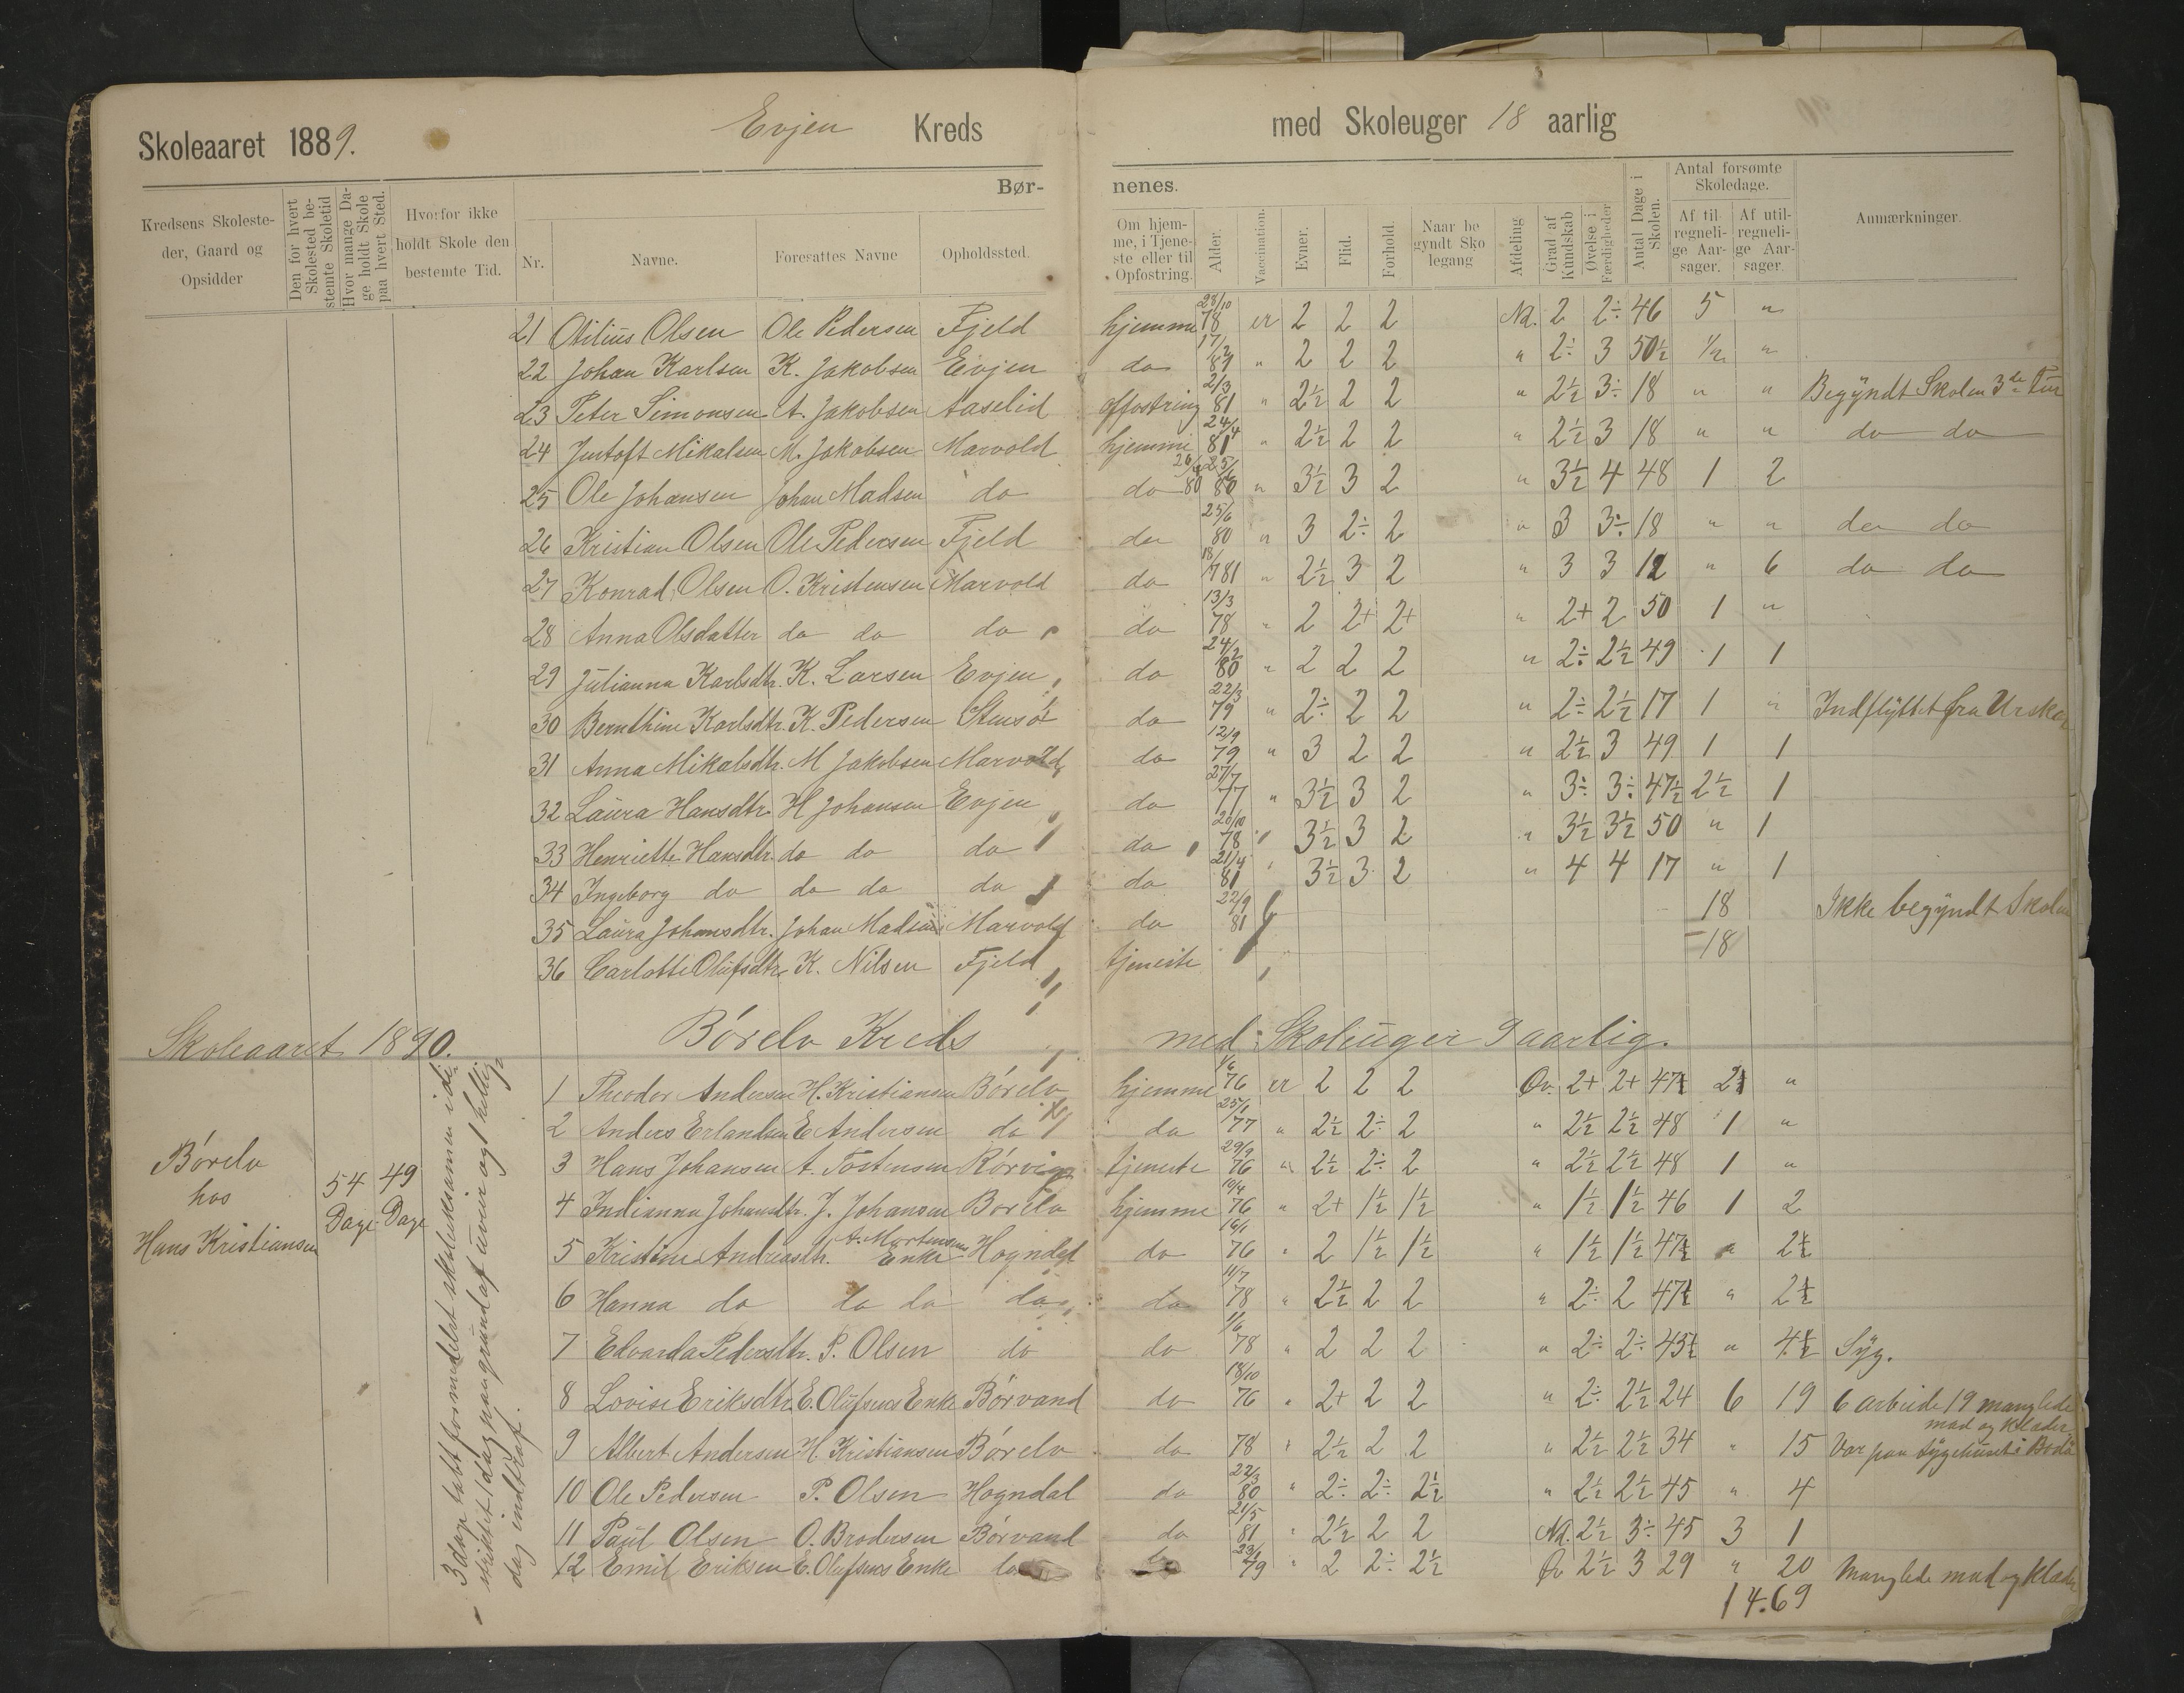 Skoleaaret 1889. Evjen Kreds med Skoleuger 18 aarlig
Bør- nenes.
Kredsens Skolesteder, Gaard og Opsidder
Den for hvert Skolested bestemte Skoletid
Hvor mange Dage holdt Skole paa hvert Sted.
Hvorfor ikke holdt Skole den bestemte Tid.
Nr. Navne. Foresattes Navne Opholdssted.
Om hjemme, i Tjeneste eller til Opfostring.
Alder. Vaccination. Evner. Flid. Forhold. Naar begyndt Skolegang Afdeling Grad af Kundskab Øvelse i Færdigheder Antal Dage i Skolen.
Antal forsømte Skoledage.
Af tilregnelige Aarsager. Af utilregnelige Aarsager.
Anmærkninger.
21 Otilius Olsen Ole Pedersen Fjeld hjemme 28/10 78 er 2 2 2 Nd. 2 2÷ 46 5 "
22 Johan Karlsen K. Jakobsen Evjen do " 2 2 2 " 2÷ 3 50½ ½ "
23 Peter Simonsen A. Jakobsen Aaselid opfostring 2/3 81 " 2½ 2 2 " 2½ 3÷ 18 " " Begyndt Skolen 3de Tur
24 Justoft Mikalsen M. Jakobsen Marvold hjemme 24/4 81 " 2½ 2 2 " 2½ 3 18 " " do do
25 Ole Johansen Johan Madsen do do 80 " 3½ 3 2 " 3½ 4 48 1 2
26 Kristian Olsen Ole Pedersen Fjeld do 25/6 80 " 3 2÷ 2 " 3 3÷ 18 " " do do
27 Konrad Olsen O. Kristensen Marvold do 18/7 81 " 2½ 3 2 " 3 3 12 " 6 do do
28 Anna Olsdatter do do do do 13/3 78 " 2 2+ 2+ " 2+ 2 50 1 "
29 Julianna Karlsdtr. K. Larsen Evjen do 24/2 80 " 2 2 2 " 2÷ 2½ 49 1 1
30 Bernthine Karlsdtr. K. Pedersen do 22/3 79 " 2÷ 2 2 " 2÷ 2½ 17 1 " Indflyttet fra
31 Anna Mikalsdtr. M Jakobsen Marvold do 12/9 79 " 3 2 2 " 2½ 3 49 1 1
32 Laura Hansdtr. H Johansen Evjen do 27/7 77 " 3½ 3 2 " 3÷ 3÷ 47½ 2½ 1
33 Henriette Hansdtr. do do do do 20/10 78 " 3½ 3 2 " 3½ 3½ 50 " 1
34 Ingeborg do do do do do 21/4 81 " 3½ 3 2 " 4 4 17 " 1
35 Laura Johansdtr. Johan Madsen Marvold do 22/9 81 18 Ikke begyndt Skolen
36 Carlotte Olufsdtr. K. Nilsen Fjeld tjeneste 18
Skoleaaret 1890. Börelv Kreds med Skoleuger 9 aarlig.
Börelv
hos
Hans Kristiansen
54 Dage
49 Dage
3 dage tabt formedelst skoleeksamen i
distriktet 1 dag paa grund af uveir og 1 hellig
dag indtraf.
1 Theodor Andersen H. Kristiansen Börelv hjemme 1/6 76 er 2 2 2 Øv. 2+ 2+ 47½ 2½ "
2 Anders Erlandsen E Andersen do do 25/1 77 " 2½ 2÷ 2 " 2½ 2½ 48 1 "
3 Hans Johansen A. Tostensen Rörvig tjeneste 29/9 76 " 2½ 2÷ 2 " 2½ 2½ 48 1 "
4 Indianna Johansdtr. J. Johansen Börelv hjemme 10/4 76 " 2+ 1½ 1½ " 1½ 1½ 46 1 2
5 Kristine Andreasdtr. A. Mortensens Enke Hogndal do 16/1 76 " 2 1½ 1½ " 1½ 1½ 47½ " 2½
6 Hanna do do do do do 11/7 78 " 2½ 2 2 " 2÷ 2 47½ " 2½
7 Edvarda Pedersdtr. P. Olsen do do 1/6 78 " 2 2 2 " 2÷ 2÷ 45½ " 4½ Syg.
8 Lovise Eriksdtr. E. Olufsens Enke Börvand do 18/10 76 " 2+ 2 2 " 2÷ 2½ 24 6 19 6 arbeide 19 manglede mad og klæder
9 Albert Andersen H. Kristiansen Börelv do 78 " 2½ 2 2 " 2½ 2½ 34 " 15 Var paa sygehuset i Bodö
10 Ole Pedersen P. Olsen Hogndal do 22/3 80 " 2÷ 2÷ 2½ " 2½ 2½ 45 " 4
11 Paul Olsen O. Brodersen Börvand do 21/5 81 " 2½ 2 2 Nd. 2½ 3÷ 45 3 1
12 Emil Eriksen E. Olufsens Enke do do 23/1 79 " 2 2÷ 2½ Ø 2½ 3 29 " 20 Manglede mad og klæder
14.69